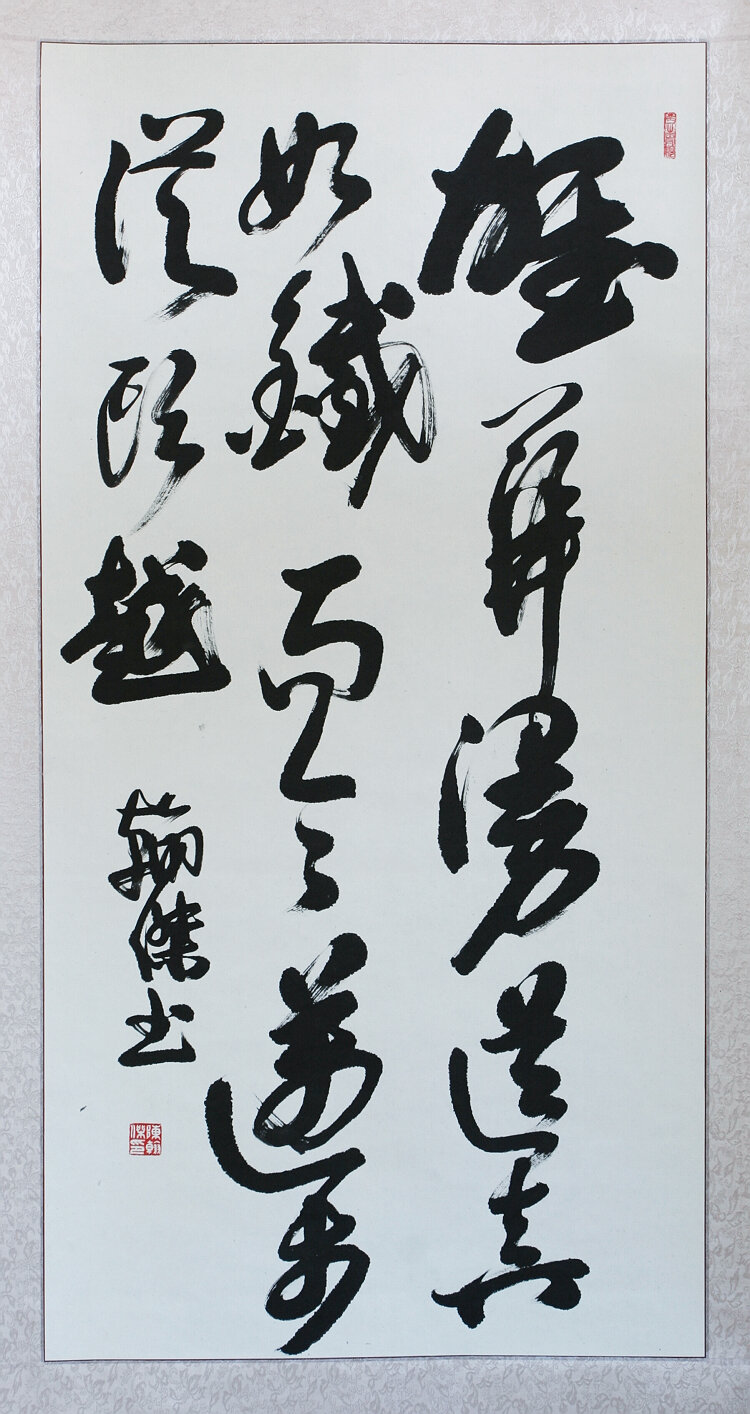 雄關漫道真
如鐵而今邁步
從頭越
翰傑书
陳翰
傑印